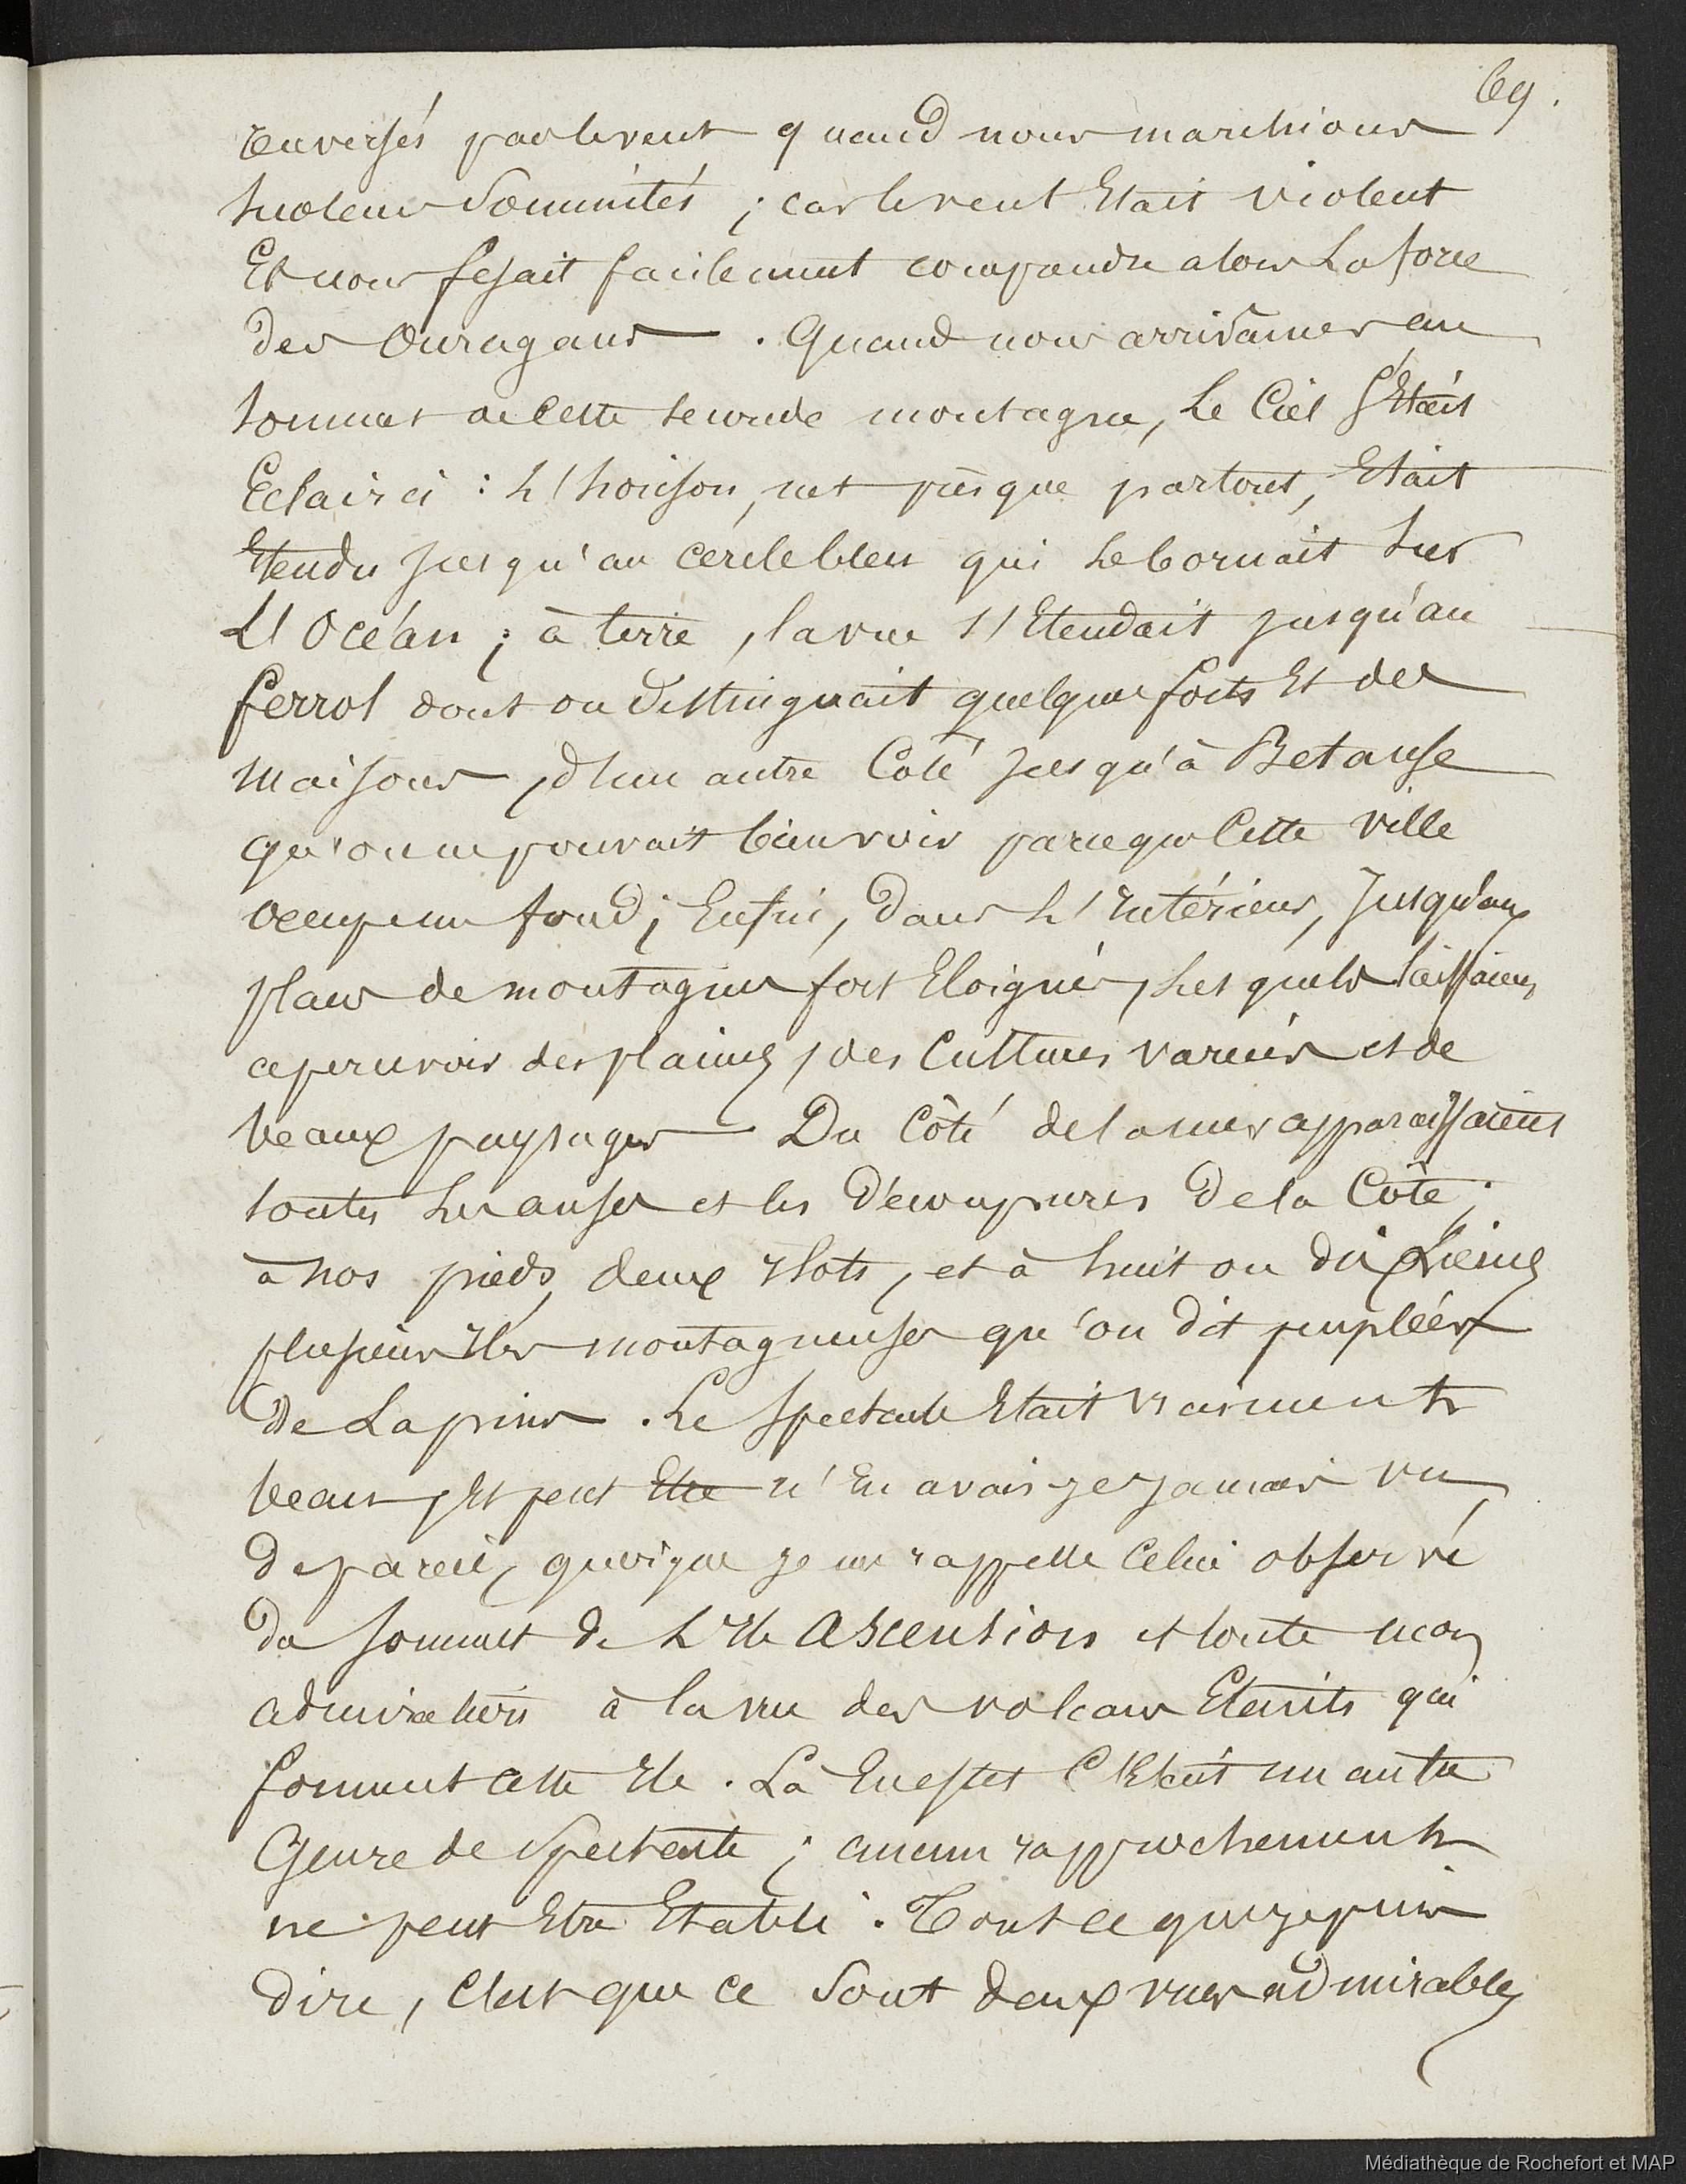 69.
renversés par le vent quand nous marchions
sur leurs sommités ; car le vent Etait violent
Et nous fesait facilement comprendre alors La force
des Ouragans . Quand nous arrivâmes au
sommet de cette seconde montagne, Le Ciel S'Etait
Eclairci : L'horison, net presque partout, Etait
Etendu jusqu'au cercle bleu qui Le bornait sur
L'Océan ; à terre, la vue s'Etendait jusqu'au
ferrol dont on distinguait quelques forts Et des
maisons, d'un autre Côté jusqu'à Betanse
qu'on ne pouvait bien voir parceque Cette ville
occupe un fond ; Enfin, dans L'intérieur, jusqu'aux
plans de montagnes fort Eloignés, Lesquels laissaient
apercevoir des plaines, des Cultures variées et de
beaux paysages Du Côté de la mer apparaissaient
toutes Les anses et les Découpures De la Côte ;
à nos pieds, deux ilots, et à huit ou dix Lieues
plusieurs Iles montagneuses qu'on dit peuplées
De Lapins . Le Spectacle Etait vraiment
beau, Et peut Etre n'En avais-je jamais vu
De pareil, quoique je me rappelle Celui observé
Du sommet de L'Ile Ascension et toute mon
admiration à la vue des volcans Eteints qui
forment Cette Ile . Là En effet C'Etait un autre
Genre de Spectacle ; aucun rapprochement
ne peut Etre Etabli . Tout ce que je puis
Dire, C'est que ce Sont deux vues admirables
Médiathèque de Rochefort et MAP